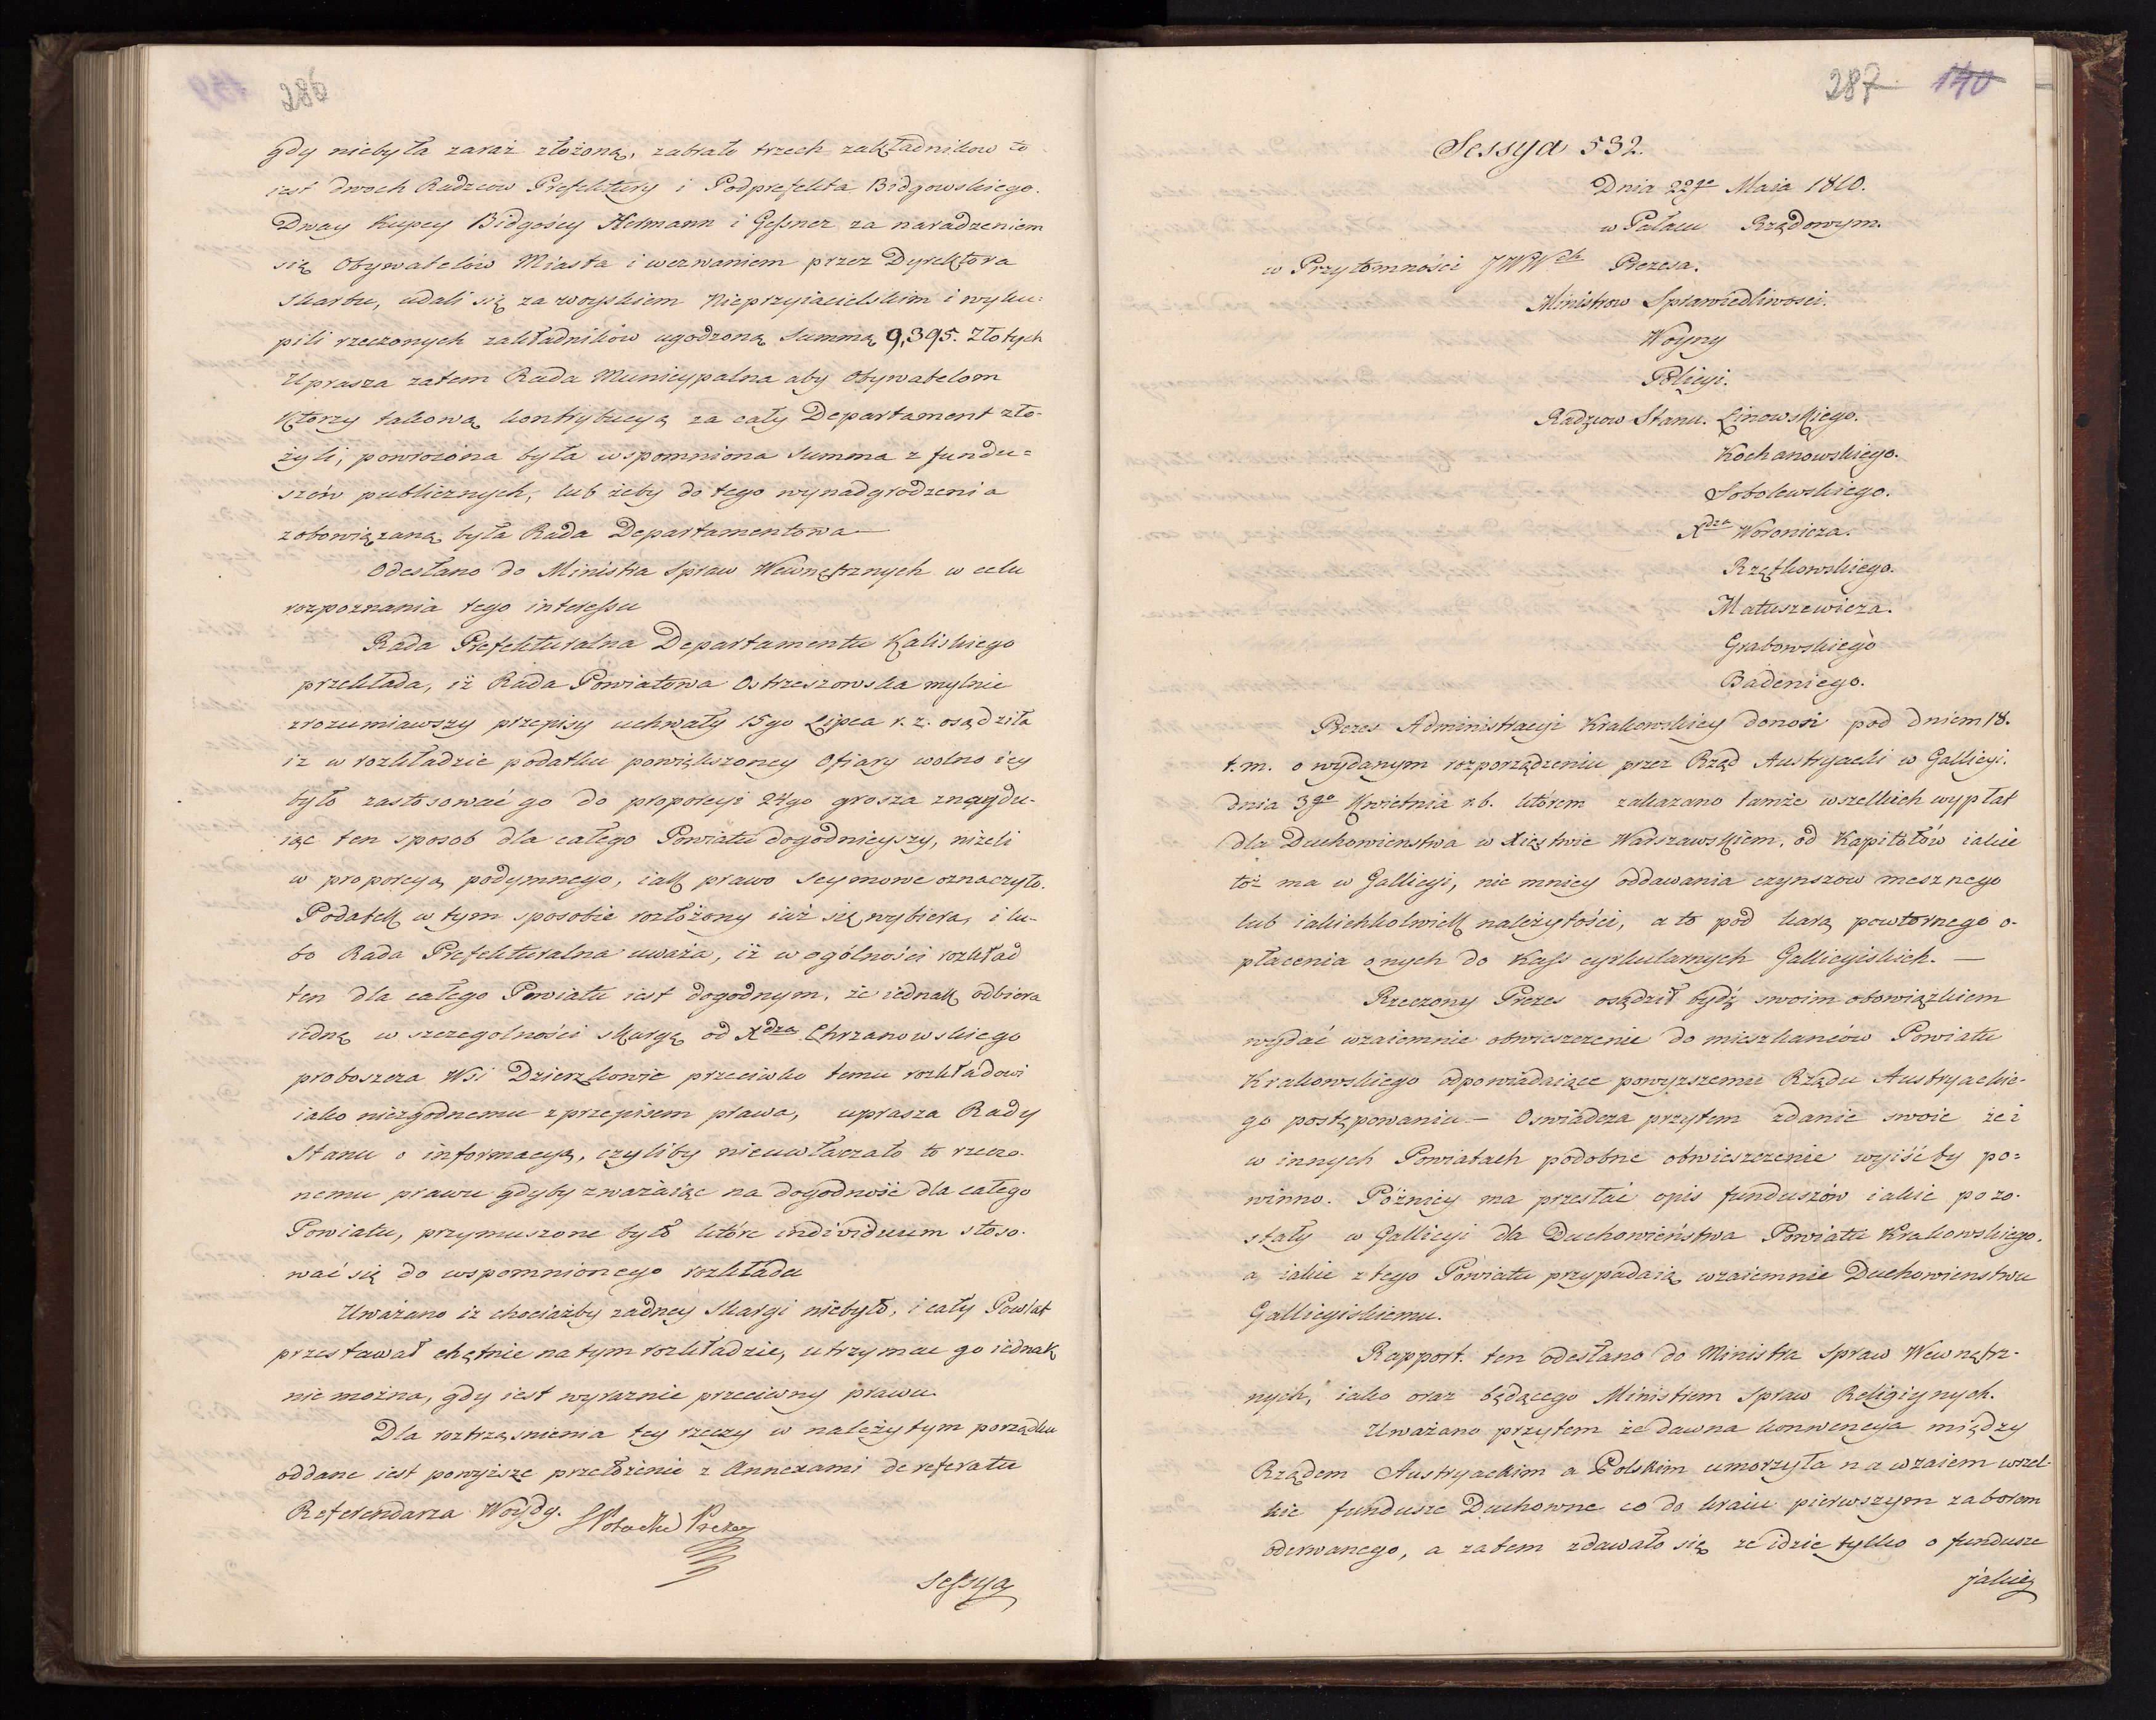 286
gdy niebyła zaraz złożoną, zabrało trzech zakładnikow to
iest dwoch Radzcow Prefektury i Podprefekta Bidgowskiego.
Dway Kupcy Bidgoscy Hermann i Gessner za naradzeniem
się Obywatelów Miasta i wezwaniem przez Dyrektora
skarbu, udali się za woyskiem Nieprzyiacielskim i wyku-
pili rzeczonych zakładników ugodzoną summą 9,395. Złotych
Uprasza zatem Rada Municypalna aby Obywatelom
Ktorzy takową kontrybucyą za cały Departament zło-
żyli, powrócona była wspomniona summa z fundu=
szów publicznych, lub żeby do tego wynadgrodzenia
zobowiązaną była Rada Departamentowa —
Odesłano do Ministra Spraw Wewnętrznych w celu
rozpoznania tego interessu
Rada Prefekturalna Departamentu Kaliskiego
przekłada, iż Rada Powiatowa Ostrzeszowska mylnie
zrozumiawszy przepisy uchwały 15go Lipca r. z. osądziła
iż w rozkładzie podatku powiększoney Ofiary wolno iey
było zastosować go do proporcyi 24go grosza znaydu-
iąc ten sposob dla całego Powiatu dogodnieyszy, niżeli
w proporcyą podymnego, iak prawo Seymowe oznaczyło.
Podatek w tym sposobie rozłożony iuż się wybiera, i lu-
bo Rada Prefekturalna uważa, iż w ogólności rozkład
ten dla całego Powiatu iest dogodnym, że iednak odbiera
iedną w szczegolności skargę od Xdza Chrzanowskiego
proboszcza Wsi Dzierzkowic przeciwko temu rozkładowi
iako niezgodnemu z przepisem prawa, uprasza Rady
Stanu o informacyą, czyliby nieuwłaczało to rzeczo-
nemu prawu gdyby zważaiąc na dogodność dla całego
Powiatu, przymuszone było które individuum stoso-
wać się do wspomnionego rozkładu
Uważano iż chociażby żadney skargi niebyło, i cały Powiat
przestawał chętnie na tym rozkładzie, utrzymać go iednak
nie można, gdy iest wyraznie przeciwny prawu.
Dla roztrząsnienia tey rzeczy w należytym porządku
oddane iest powyższe przełożenie z Annexami do referatu
Referendarza Woydy. SPotocki Prezes
Sessya
287 140
Sessya 532.
Dnia 22go Maia 1810.
w Pałacu Rządowym.
w Przytomności JWWch Prezesa.
Ministrow Sprawiedliwosci.
Woyny
Policyi.
Radzcow Stanu. Linowskiego.
Kochanowskiego.
Sobolewskiego.
Xdza Woronicza.
Rzętkowskiego.
Matuszewicza.
Grabowskiego
Badeniego.
Prezes Administracyi Krakowskiey donosi pod dniem 18.
t. m. o wydanym rozporządzeniu przez Rząd Austryacki w Gallicyi.
dnia 3go Kwietnia r. b. którem zakazano tamże wszelkich wypłat
dla Duchowienstwa w Xięstwie Warszawskiem, od Kapitołów iakie
toż ma w Gallicyi, nie mniey oddawania czynszow mesznego
lub iakichkolwiek należytości, a to pod karą powtornego o-
płacenia onych do Kass cyrkularnych Gallicyiskich. —
Rzeczony Prezes osądził bydź swoim obowiązkiem
wydać wzaiemnie obwieszczenie do mieszkańców Powiatu
Krakowskiego odpowiadaiące powyzszemu Rządu Austryackie-
go postępowaniu — Oswiadcza przytem zdanie swoie że i
w innych Powiatach podobne obwieszczenie wyiśćby po=
winno. Pożniey ma przesłać opis funduszów iakie pozo-
stały w Gallicyi dla Duchowieństwa Powiatu Krakowskiego.
a iakie z tego Powiatu przypadaią wzaiemnie Duchowienstwu
Gallicyiskiemu.
Rapport ten odesłano do Ministra Spraw Wewnętrz-
nych, iako oraz będącego Ministrem Spraw Religiynych.
Uważano przytem że dawna konwencya między
Rządem Austryackim a Polskim umorzyła na wzaiem wszel-
kie fundusze Duchowne co do kraiu pierwszym zaborem
oderwanego, a zatem zdawało się że idzie tylko o fundusze
jakie